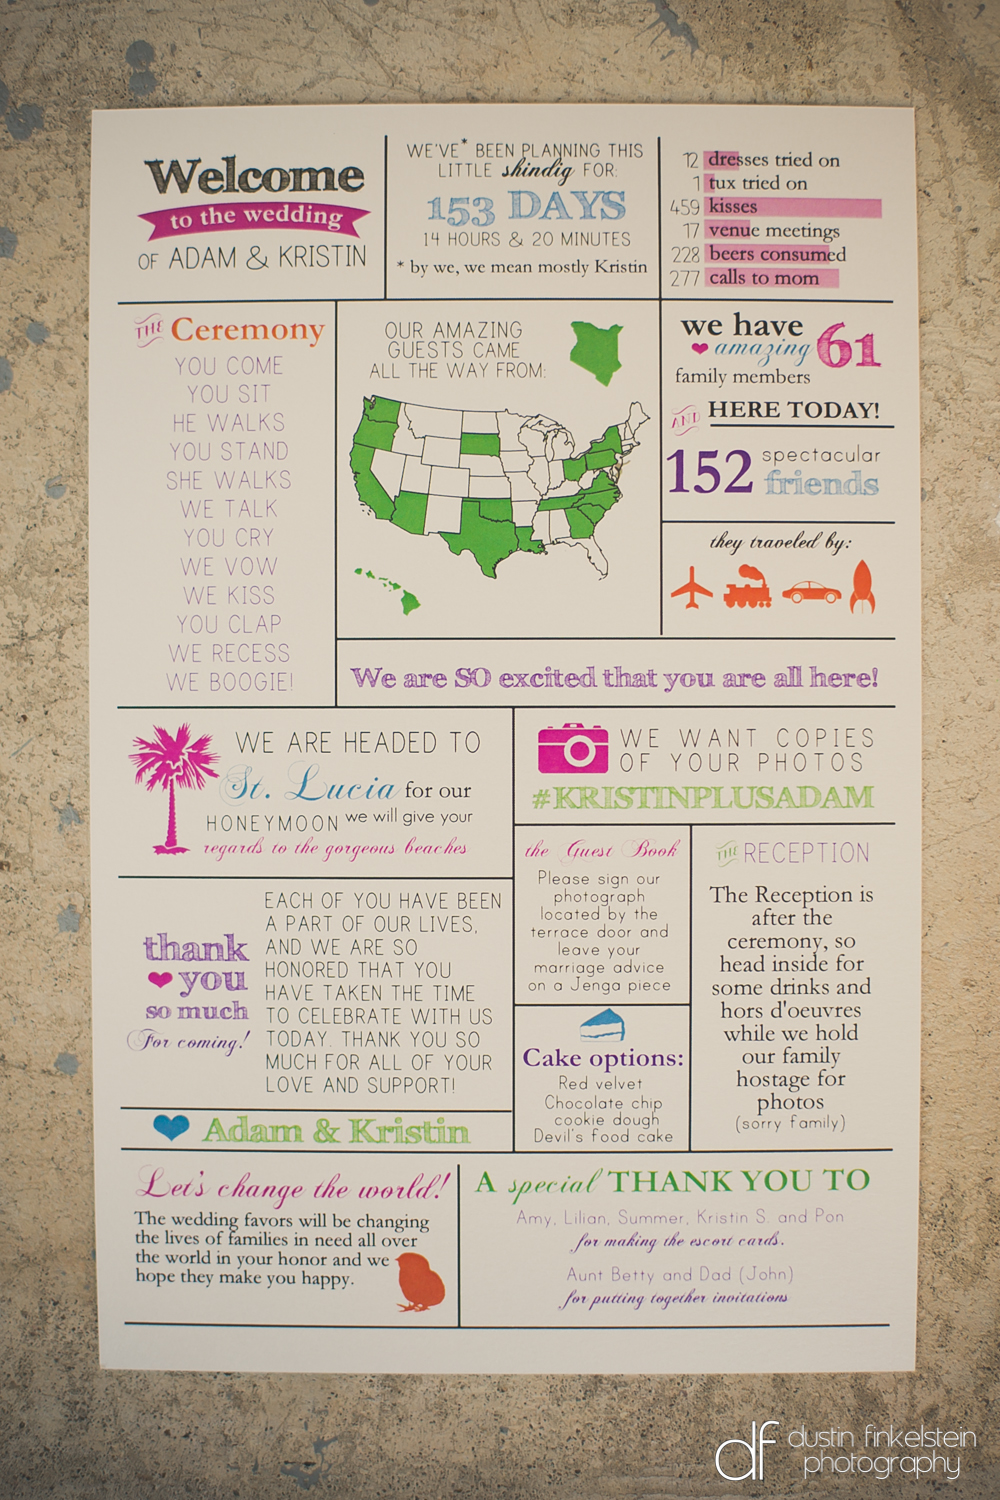 Welcome
to the wedding
OF ADAM & KRISTIN
WE'VE* BEEN PLANNING THIS
LITTLE shindig FOR:
153 DAYS
14 HOURS & 20 MINUTES
* by we, we mean mostly Kristin
12 dresses tried on
1 tux tried on
459 kisses
17 venue meetings
228 beers consumed
277 calls to mom
THE Ceremony
YOU COME
YOU SIT
HE WALKS
YOU STAND
SHE WALKS
WE TALK
YOU CRY
WE VOW
WE KISS
YOU CLAP
WE RECESS
WE BOOGIE!
OUR AMAZING
GUESTS CAME
ALL THE WAY FROM:
we have
amazing 61
family members
AND HERE TODAY!
152 spectacular
friends
they traveled by:
We are SO excited that you are all here!
WE ARE HEADED TO
St. Lucia for our
HONEYMOON we will give your
regards to the gorgeous beaches
WE WANT COPIES
OF YOUR PHOTOS
#KRISTINPLUSADAM
thank
you
so much
For coming!
EACH OF YOU HAVE BEEN
A PART OF OUR LIVES,
AND WE ARE SO
HONORED THAT YOU
HAVE TAKEN THE TIME
TO CELEBRATE WITH US
TODAY. THANK YOU SO
MUCH FOR ALL OF YOUR
LOVE AND SUPPORT!
Adam & Kristin
the Guest Book
Please sign our
photograph
located by the
terrace door and
leave your
marriage advice
on a Jenga piece
Cake options:
Red velvet
Chocolate chip
cookie dough
Devil's food cake
THE RECEPTION
The Reception is
after the
ceremony, so
head inside for
some drinks and
hors d'oeuvres
while we hold
our family
hostage for
photos
(sorry family)
Let's change the world!
The wedding favors will be changing
the lives of families in need all over
the world in your honor and we
hope they make you happy.
A special THANK YOU TO
Amy, Lilian, Summer, Kristin S. and Pon
for making the escort cards.
Aunt Betty and Dad (John)
for putting together invitations
df dustin finkelstein
photography